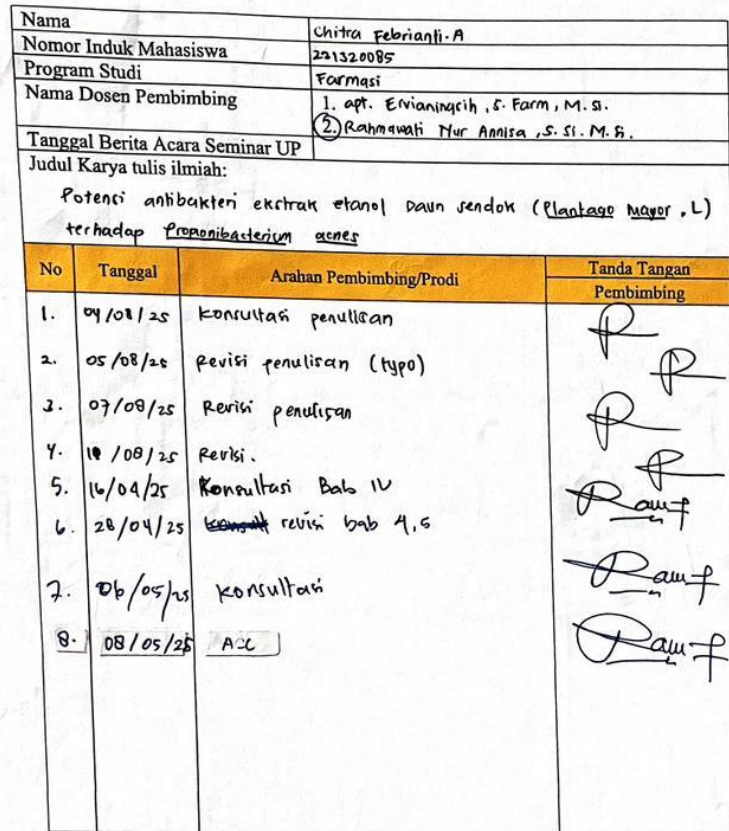 Nama Chitra Febrianti.A
Nomor Induk Mahasiswa 221320085
Program Studi Farmasi
Nama Dosen Pembimbing 1. apt. Ervianingsih, S. Farm, M. Si.
2. Rahmawati Nur Annisa, S. Si. M. Si.
Tanggal Berita Acara Seminar UP
Judul Karya tulis ilmiah:
Potensi antibakteri ekstrak etanol Daun sendok (Plantago Mayor, L)
terhadap Propionibacterium acnes
No Tanggal Arahan Pembimbing/Prodi Tanda Tangan
Pembimbing
1. 04/08/25 Konsultasi penulisan
2. 05/08/25 Revisi penulisan (typo)
3. 07/08/25 Revisi penulisan
4. /08/25 Revisi.
5. 16/04/25 Konsultasi Bab IV
6. 28/04/25 revisi bab 4,5
7. 06/05/25 Konsultasi
8. 08/05/25 ACC